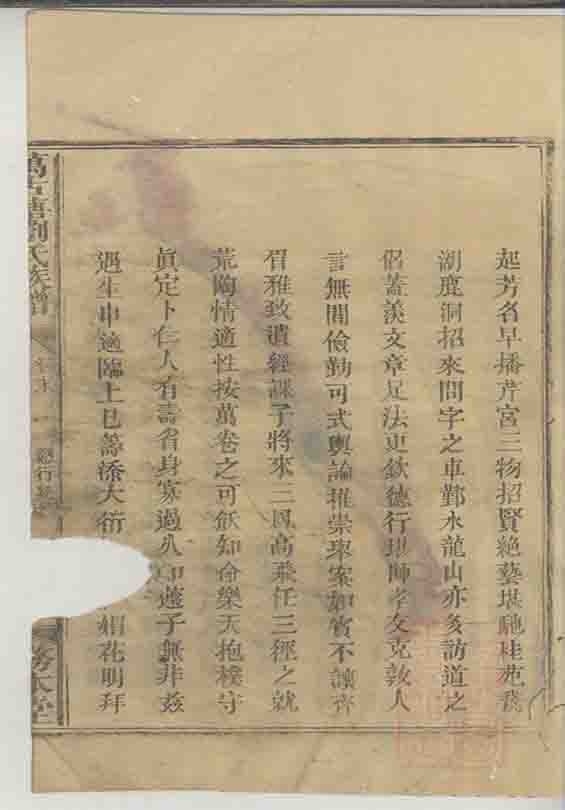 起芳名早播芹宮三物招賢絶藝堪馳桂苑鵞
湖鹿洞招來問字之車鄞水龍山亦多訪道之
侶蓋羨文章足法更欽德行堪師孝友克敦人
言無間儉勤可式輿論推崇舉案如賓不讓齊
眉雅致遺經課子將來二鳳高飛任三徑之就
荒陶情適性按萬卷之可飫知命樂天抱樸守
眞定卜仁人有壽省身寡過久印蘧子無非茲
遇生申適臨上巳籌添大衍 花明拜
萬 劉氏族譜
行
本堂